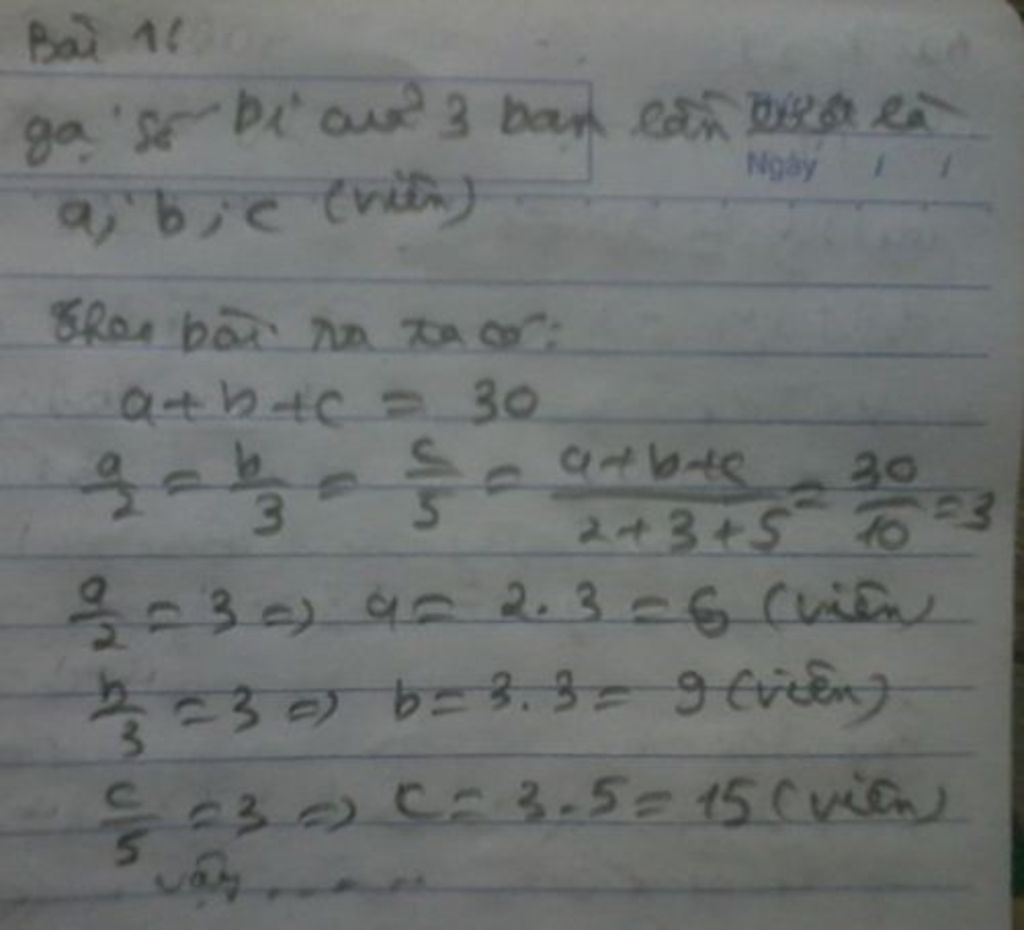 Bài 1:
gọi số bi của 3 bạn lần lượt là
Ngày / /
a; b; c (viên)
Theo bài ra ta có:
a+b+c = 30
a/2 = b/3 = c/5 = a+b+c/2+3+5 = 30/10 = 3
a/2 = 3 => a = 2.3 = 6 (viên)
b/3 = 3 => b = 3.3 = 9 (viên)
c/5 = 3 => c = 3.5 = 15 (viên)
vậy .......